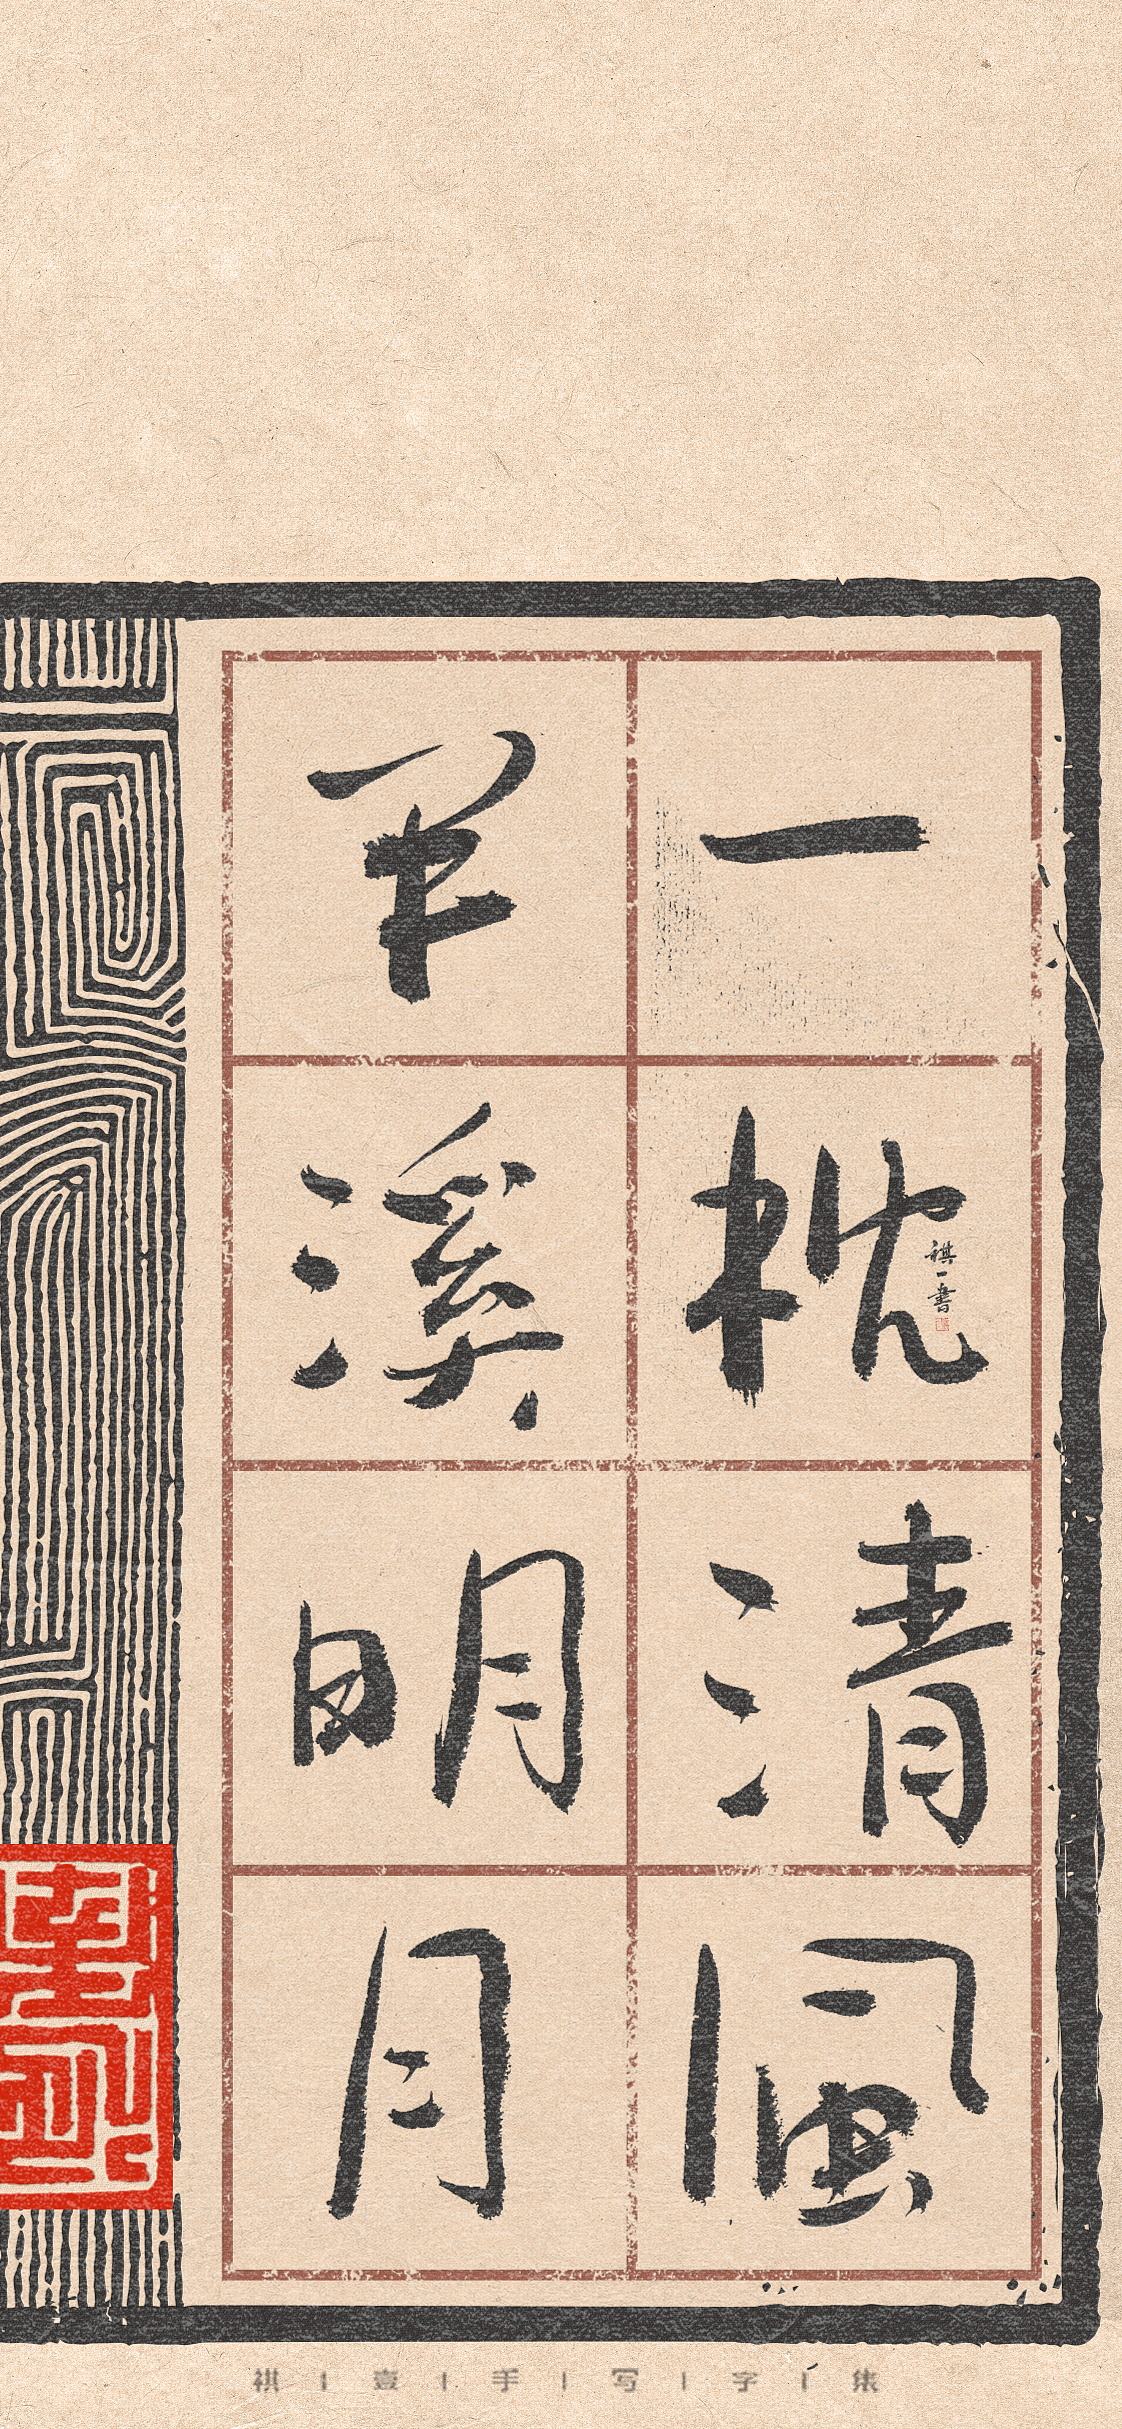 一枕清風
半溪明月
祺一書
祺 | 壹 | 手 | 写 | 字 | 集